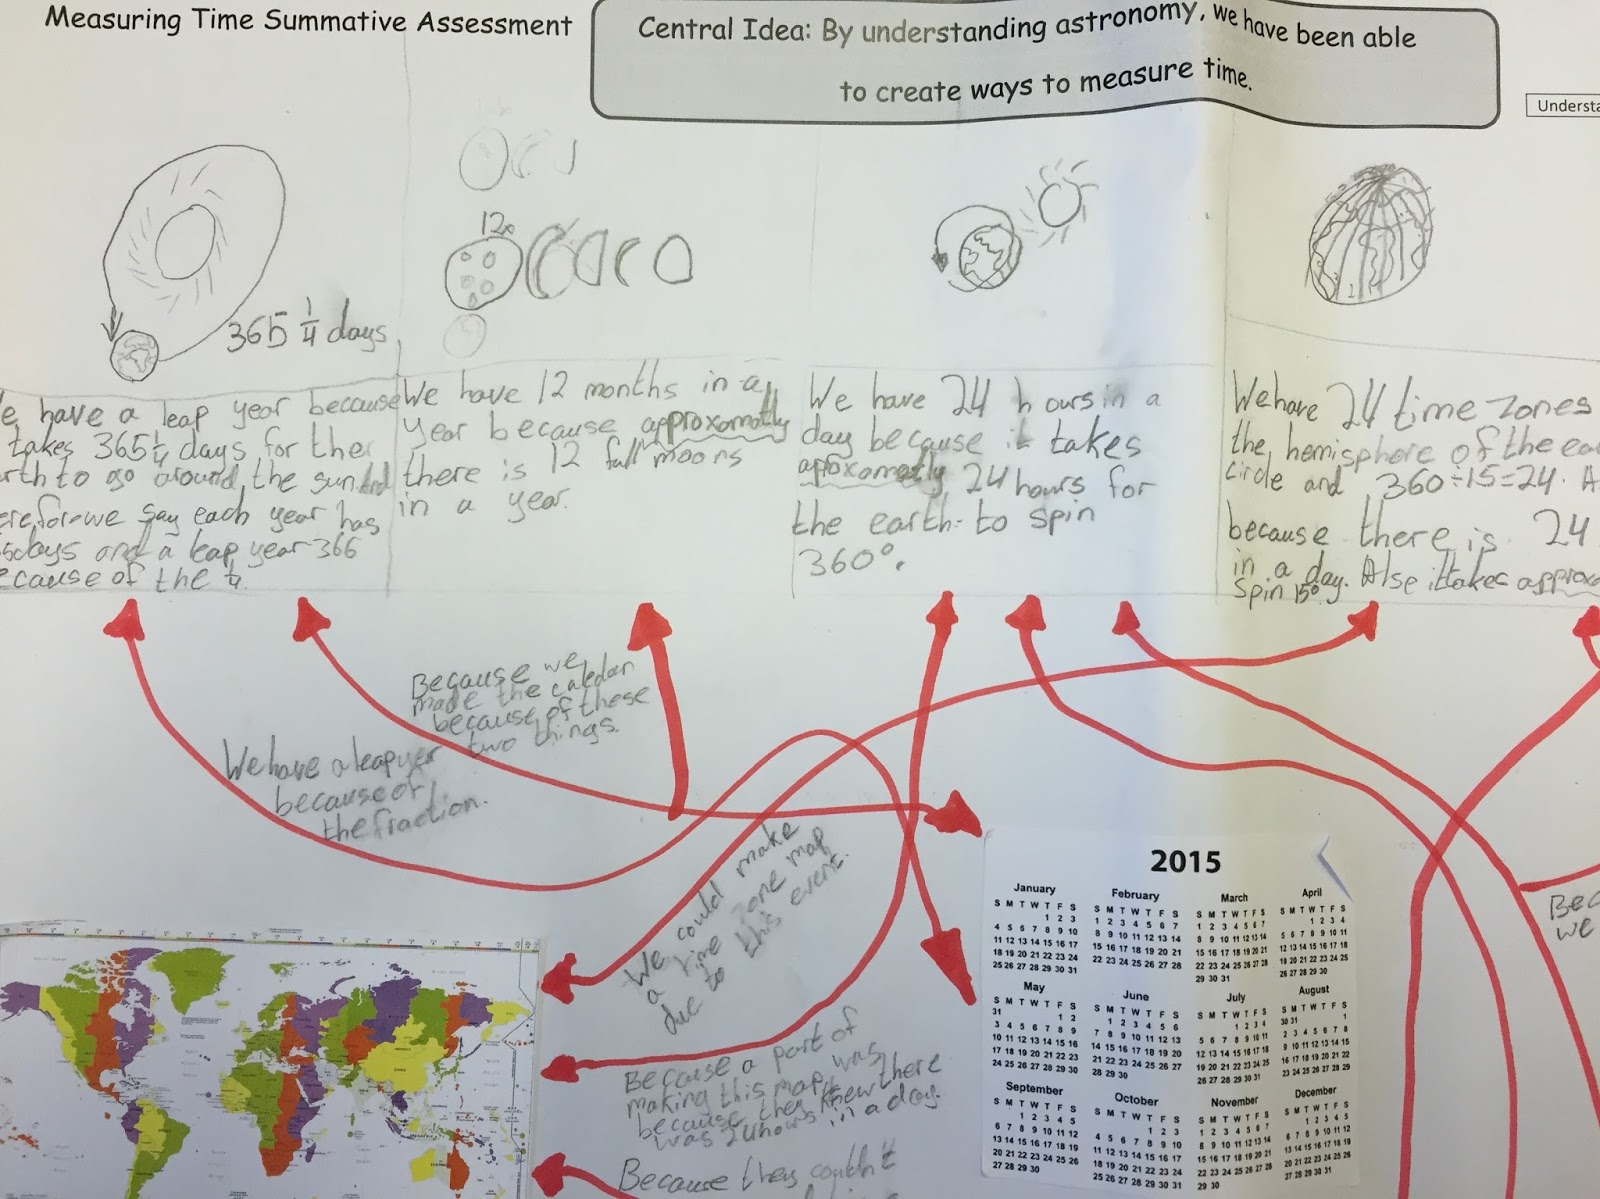 Measuring Time Summative Assessment
Central Idea: By understanding astronomy, we have been able
to create ways to measure time.
Understa
365 1/4 days
12x
e have a leap year because
takes 365 1/4 days for the
rth to go around the sun And
erefor we say each year has
days and a leap year 366
ecause of the 1/4.
We have 12 months in a
year because approxomotly
there is 12 full moons
in a year.
We have 24 hours in a
day because it takes
apoxomotly 24 hours for
the earth to spin
360°.
We have 24 time zones
the hemisphere of the ea
circle and 360÷15=24. A
because there is 24
in a day. Also it takes approx
spin 15°.
Because we
made the calendar
because of these
two things.
We have a leap year
because of
the fraction.
We could make
a time zone map
due to this event.
Because a part of
making this map was
because they knew there
was 24 hours in a day.
Because they couldn't
Bec
we
2015
January
S M T W T F S
1 2 3
4 5 6 7 8 9 10
11 12 13 14 15 16 17
18 19 20 21 22 23 24
25 26 27 28 29 30 31
February
S M T W T F S
1 2 3 4 5 6 7
8 9 10 11 12 13 14
15 16 17 18 19 20 21
22 23 24 25 26 27 28
March
S M T W T F S
1 2 3 4 5 6 7
8 9 10 11 12 13 14
15 16 17 18 19 20 21
22 23 24 25 26 27 28
29 30 31
April
S M T W T F S
1 2 3 4
5 6 7 8 9 10 11
12 13 14 15 16 17 18
19 20 21 22 23 24 25
26 27 28 29 30
May
S M T W T F S
31 1 2
3 4 5 6 7 8 9
10 11 12 13 14 15 16
17 18 19 20 21 22 23
24 25 26 27 28 29 30
June
S M T W T F S
1 2 3 4 5 6
7 8 9 10 11 12 13
14 15 16 17 18 19 20
21 22 23 24 25 26 27
28 29 30
July
S M T W T F S
1 2 3 4
5 6 7 8 9 10 11
12 13 14 15 16 17 18
19 20 21 22 23 24 25
26 27 28 29 30 31
August
S M T W T F S
30 31 1
2 3 4 5 6 7 8
9 10 11 12 13 14 15
16 17 18 19 20 21 22
23 24 25 26 27 28 29
September
S M T W T F S
1 2 3 4 5
6 7 8 9 10 11 12
13 14 15 16 17 18 19
20 21 22 23 24 25 26
27 28 29 30
October
S M T W T F S
1 2 3
4 5 6 7 8 9 10
11 12 13 14 15 16 17
18 19 20 21 22 23 24
25 26 27 28 29 30 31
November
S M T W T F S
1 2 3 4 5 6 7
8 9 10 11 12 13 14
15 16 17 18 19 20 21
22 23 24 25 26 27 28
29 30
December
S M T W T F S
1 2 3 4 5
6 7 8 9 10 11 12
13 14 15 16 17 18 19
20 21 22 23 24 25 26
27 28 29 30 31